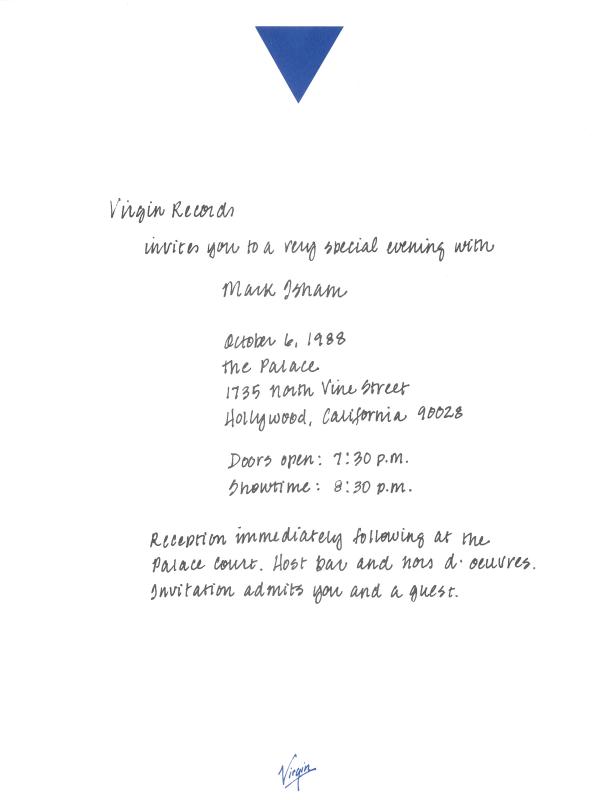 Virgin Records
invites you to a very special evening with
Mark Isham
October 6, 1988
the Palace
1735 North Vine Street
Hollywood, California 90028
Doors open: 7:30 p.m.
Showtime: 8:30 p.m.
Reception immediately following at the
Palace Court. Host bar and hors d' oeuvres.
Invitation admits you and a guest.
Virgin